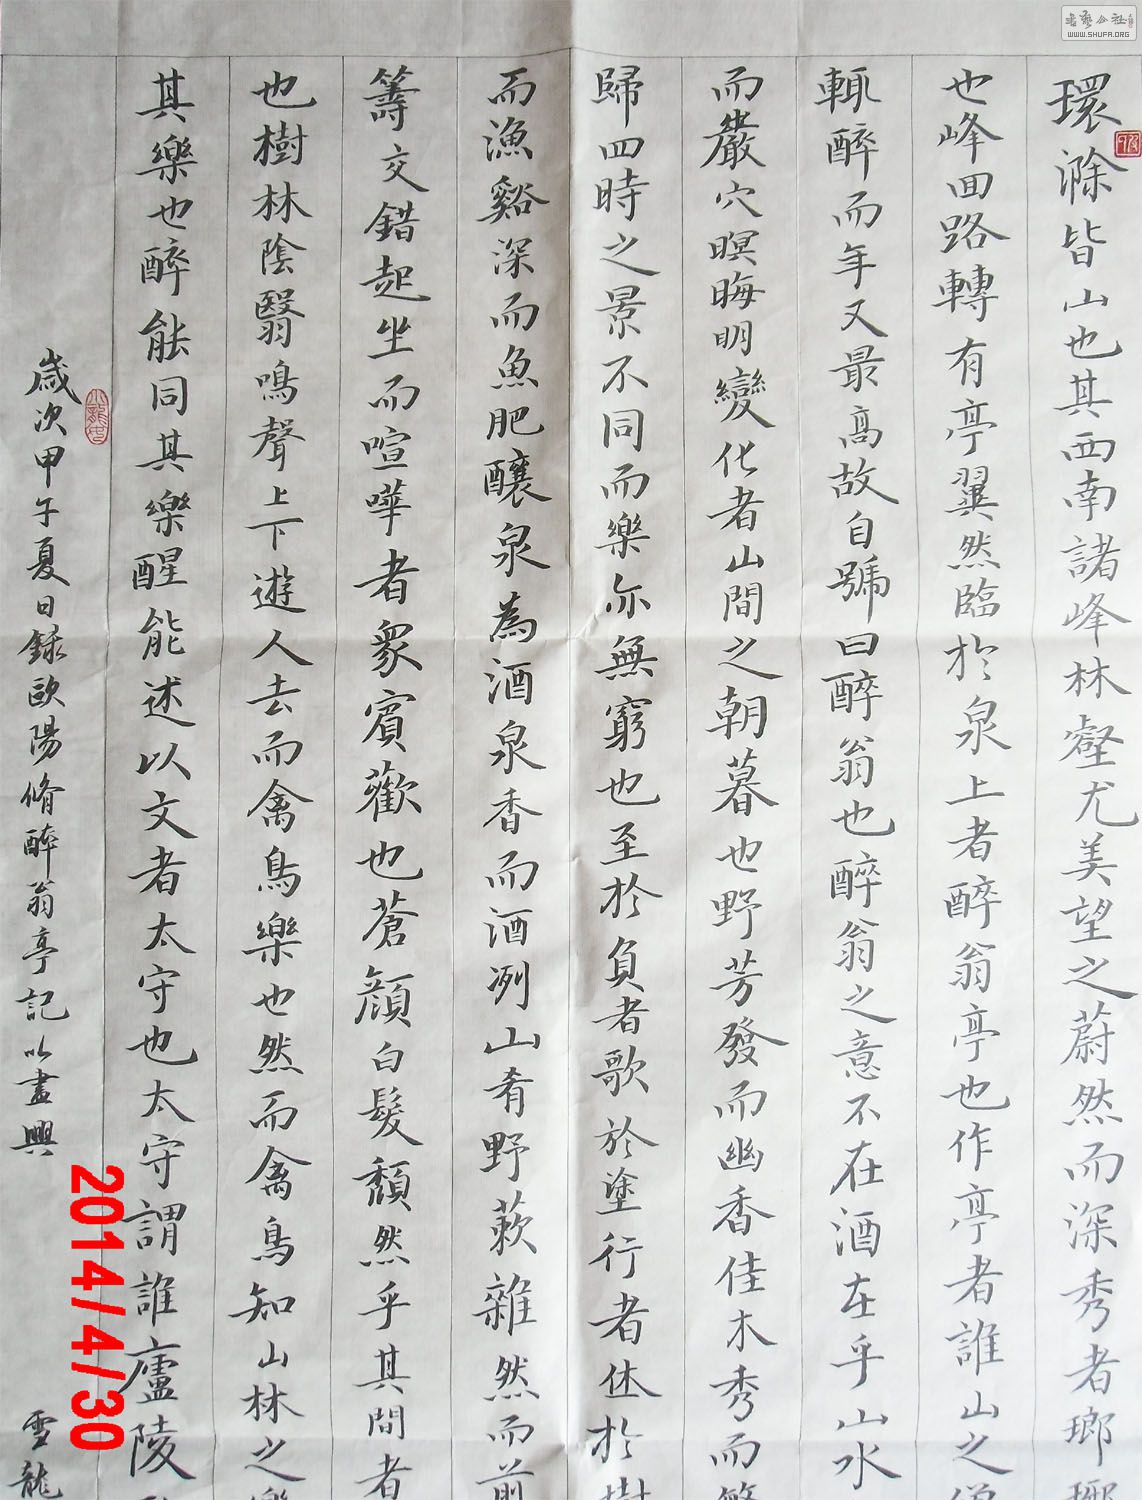 環滁皆山也其西南諸峰林壑尤美望之蔚然而深秀者瑯瑯
也峰回路轉有亭翼然臨於泉上者醉翁亭也作亭者誰山之僧
輒醉而年又最高故自號曰醉翁也醉翁之意不在酒在乎山水
而巖穴暝晦明變化者山間之朝暮也野芳發而幽香佳木秀而繁
歸四時之景不同而樂亦無窮也至於負者歌於塗行者休於樹
而漁谿深而魚肥釀泉為酒泉香而酒冽山肴野蔌雜然而前
籌交錯起坐而喧嘩者眾賓歡也蒼顏白髮頹然乎其間者
也樹林陰翳鳴聲上下遊人去而禽鳥樂也然而禽鳥知山林之樂
其樂也醉能同其樂醒能述以文者太守也太守謂誰廬陵
歲次甲午夏日錄歐陽脩醉翁亭記以畫興
雪龍
2014/4/30
書藝公社
WWW.SHUFA.ORG